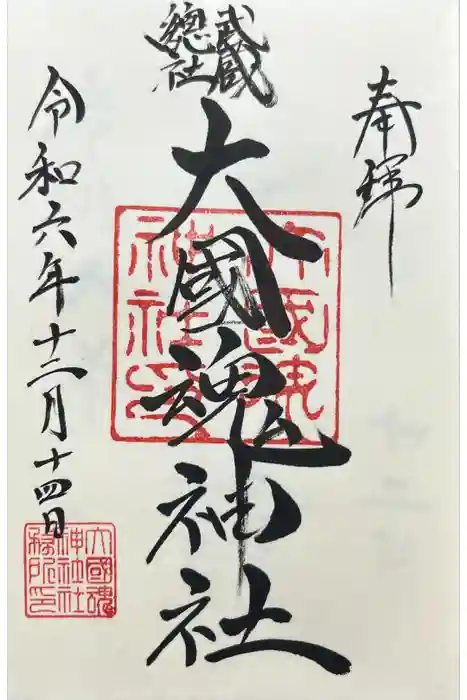 奉拝
武蔵
總社
大國魂神社
令和六年十二月十四日
大國魂
神社印
大國魂
神社社
務所印